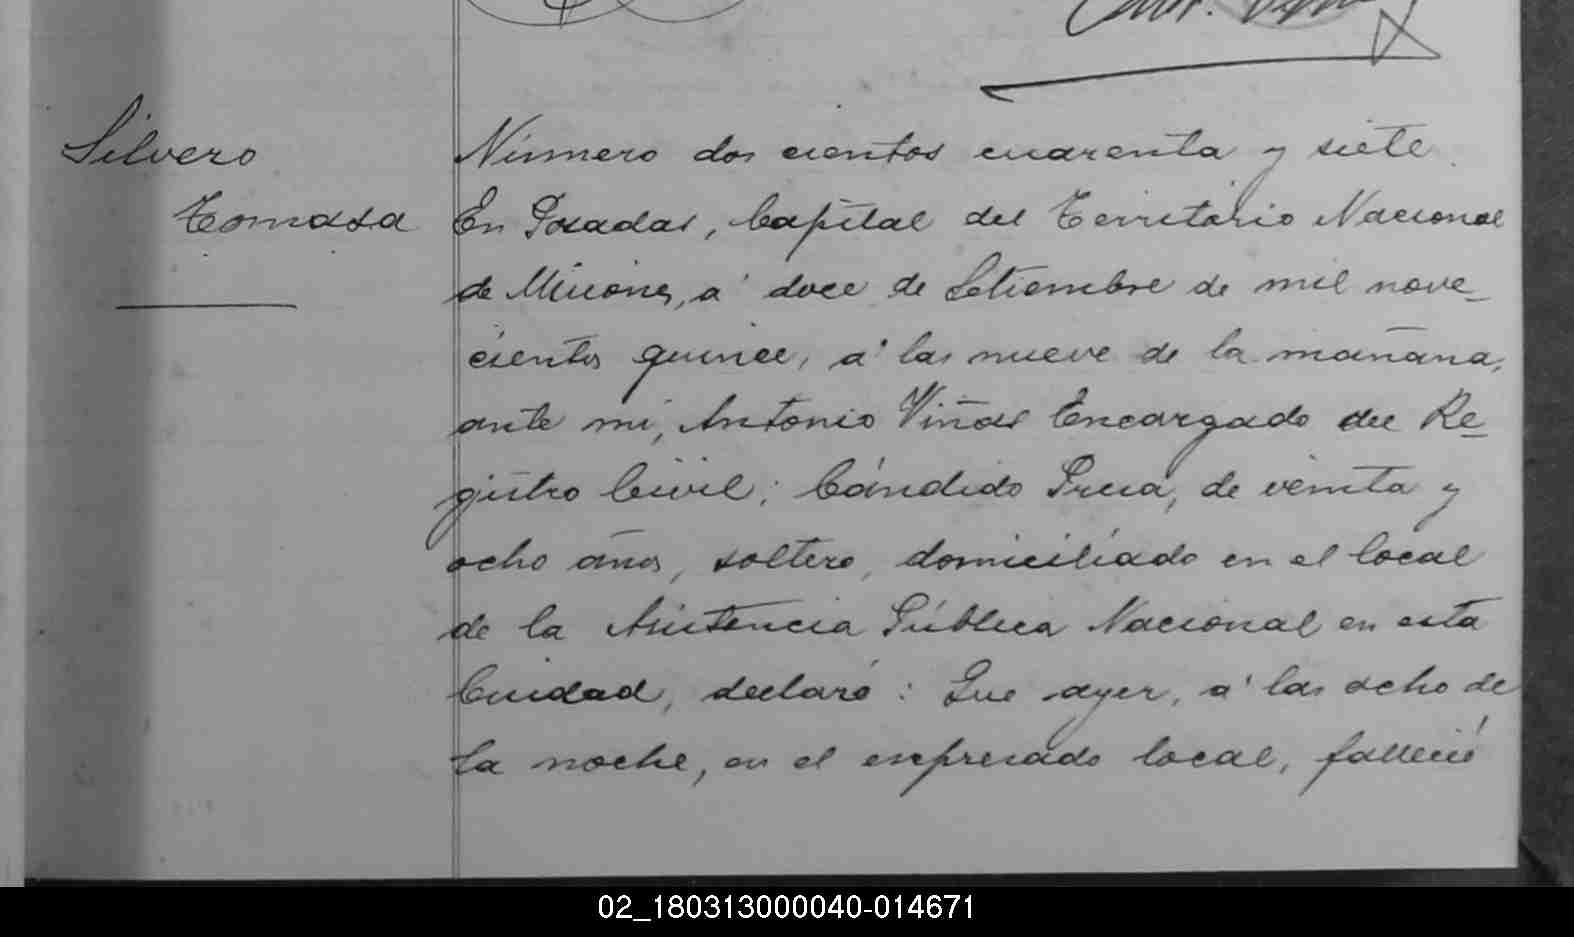 Silvero
Tomasa
Número dos cientos cuarenta y siete.
En Posadas, Capital del Territorio Nacional
de Misiones, á doce de Setiembre de mil nove-
cientos quince, á las nueve de la mañana,
ante mi, Antonio Viñas Encargado del Re-
gistro Civil; Cándido, de veinta y
ocho años, soltero, domiciliado en el local
de la Asistencia Pública Nacional en esta
Ciudad, declaró: Que ayer, á las ocho de
la noche, en el expresado local, falleció
02_180313000040-014671